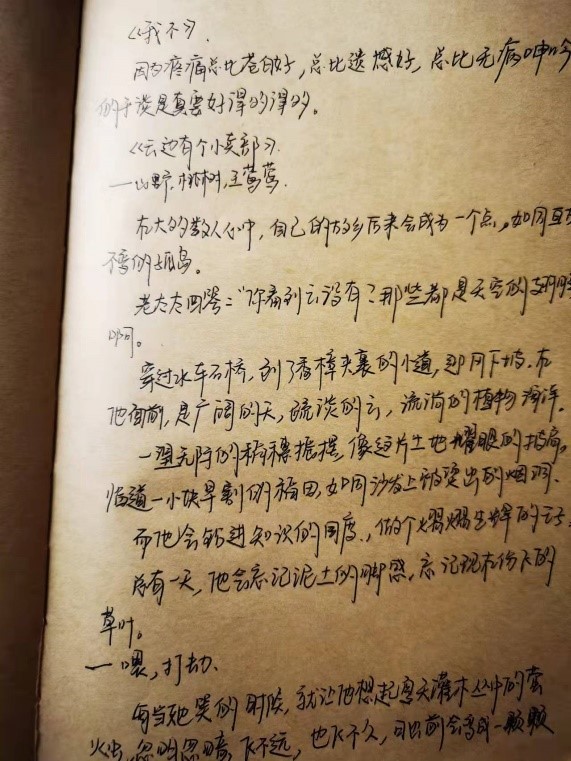 《我不》.
因为疼痛总比苍白好，总比遗憾好，总比无病呻吟
的干谈是真要好得的得的。
《云边有个小卖部》.
一山野.桃树,王莺莺.
在大多数人心中，自己的故乡后来会成为一个点，如同亘古
不变的孤岛。
老太太回答：“你看到云没有？那些都是天空的翅膀
啊。
穿过水车石桥，到了香樟夹裹的小道，即同下坡.在
他面前,是广阔的天,疏淡的云，流淌的植物海洋。
一望无际的稻穗摇摆,像这片土地耀眼的披肩,
临道一小块早割的稻田,如同沙发上被烫出的烟洞.
而他会钻进知识的国度.,做个熠熠生辉的云子.
总有一天，他会忘记泥土的脚感，忘记现在伤下的
草叶。
一喂，打劫.
每当她哭的时候，就让他想起夏天灌木丛中的萤
火虫,忽明忽暗,飞不远，也飞不久，日出前会变成一颗颗